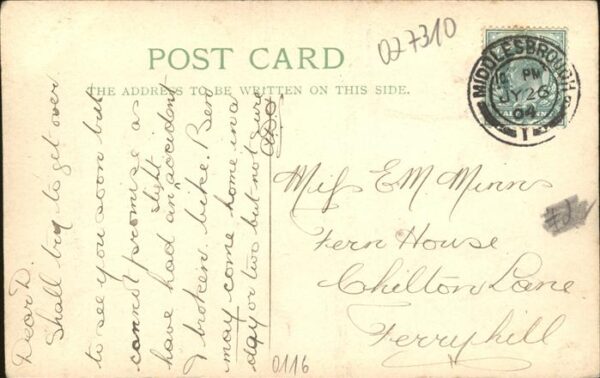 POST CARD
THE ADDRESS TO BE WRITTEN ON THIS SIDE.
027310
MIDDLESBROUGH
10 PM
JY 26
04
1
Dear D.
Shall try to get over
to see you soon but
cannot promise as
have had an slight accident
& broken bike. Ben
may come home in a
day or two but not sure
Miss E M. Minns
Fern House
Chilton Lane
Ferryhill
0116